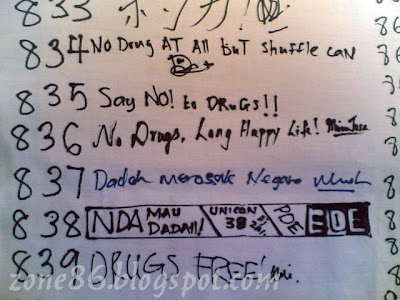 833
834 No Drug AT All but shuffle can
835 Say NO! to DRUGS!!
836 No Drugs, Long Happy Life!
837 Dadah merosak Negara
838 NDA MAU DADAH!! UNICON 38 POE EDE
839 DRUGS FREE!
86
8
8
zone86.blogspot.com